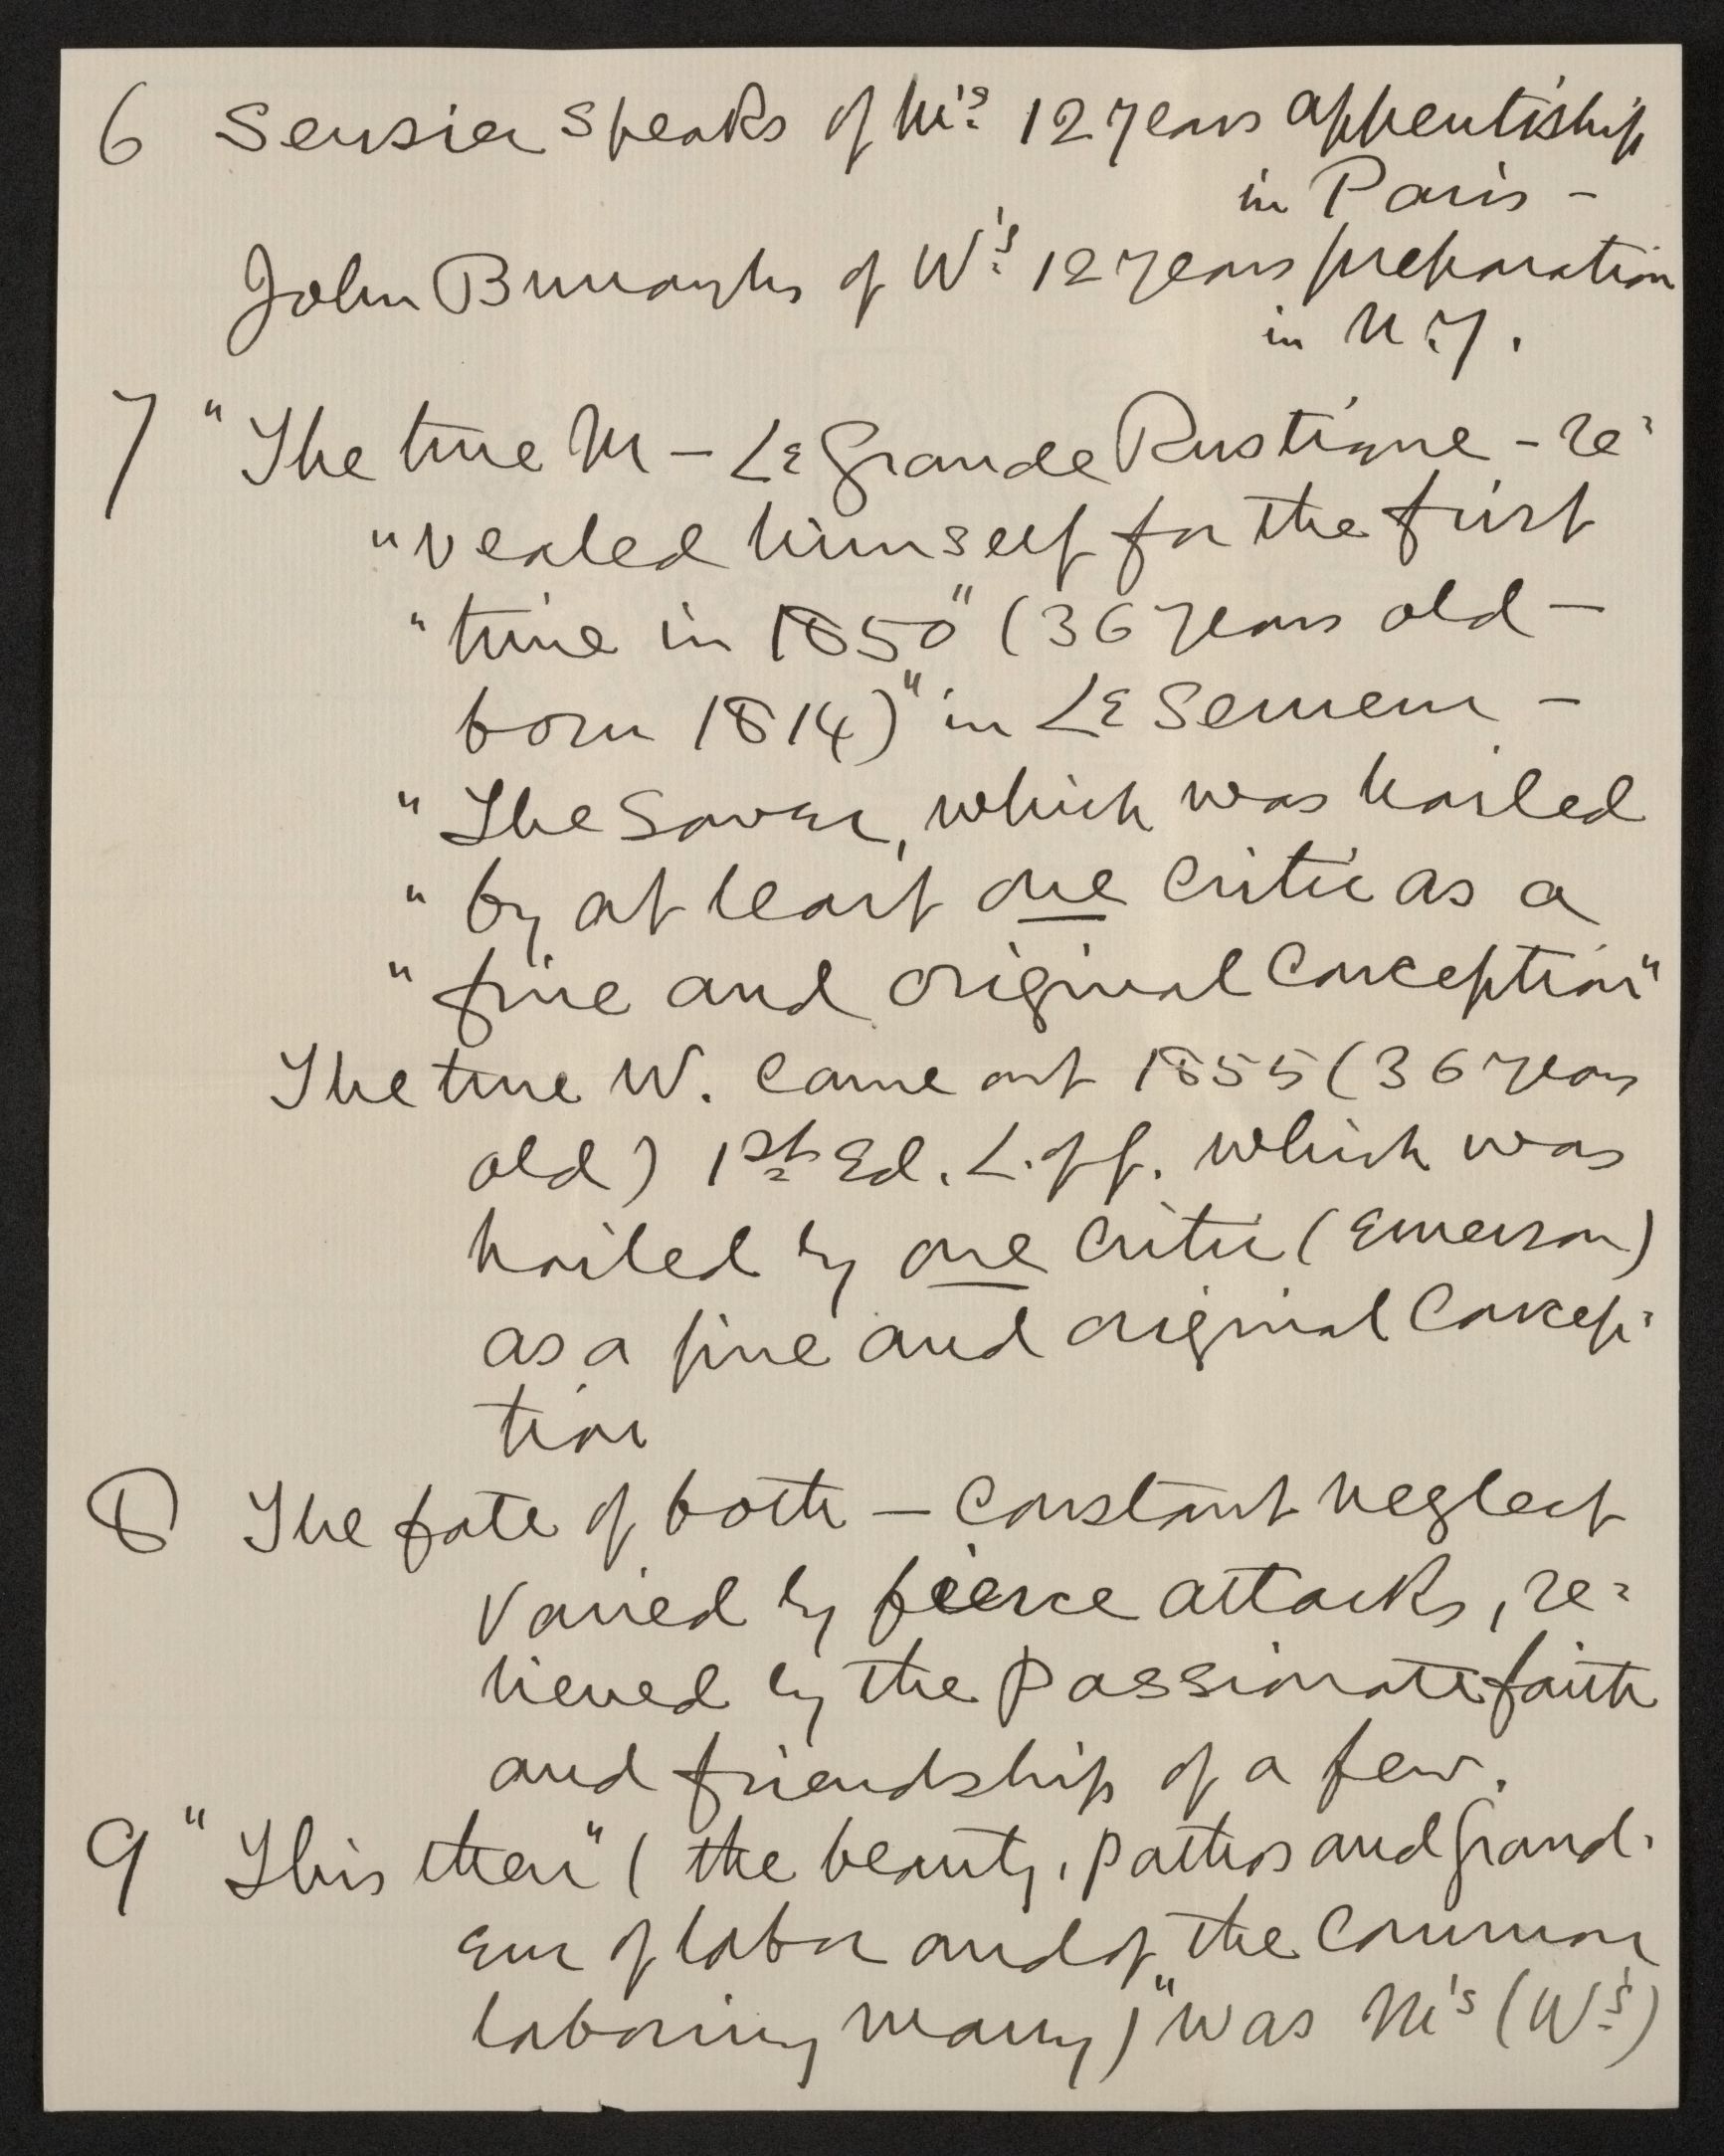 6 Sensier speaks of M's 12 years appentiship
in Paris -
John Burroughs of W's 12 years preparation
in N.Y.
7 "The true M - Le Grande Rustique - re-
"vealed himself for the first
"time in 1850" (36 years old -
born 1814) "in Le Semeur -
"The Sower, which was hailed
"by at least one critic as a
"fine and original conception"
The true W. came out 1855 (36 years
old) 1st Ed. L. of G. which was
hailed by one critic (Emerson)
as a fine and original concep-
tion
8 The fate of both - constant neglect
varied by fierce attacks, re-
lieved by the passionate faith
and friendship of a few.
9 "This then" (the beauty, pathos and grand-
eur of labor and of the common
laboring many) "was M's (W's)